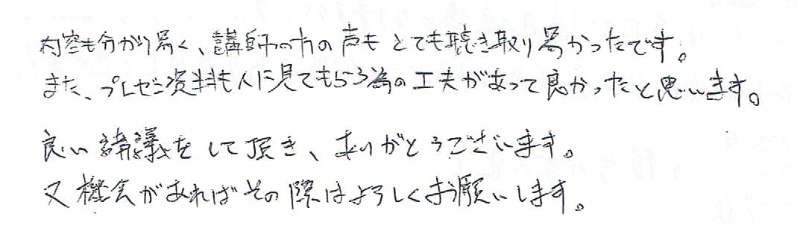 内容も分かり易く、講師の方の声もとても聴き取り易かったです。
また、プレゼン資料も人に見てもらう為の工夫があって良かったと思います。
良い講義をして頂き、ありがとうございます。
又機会があればその際はよろしくお願いします。